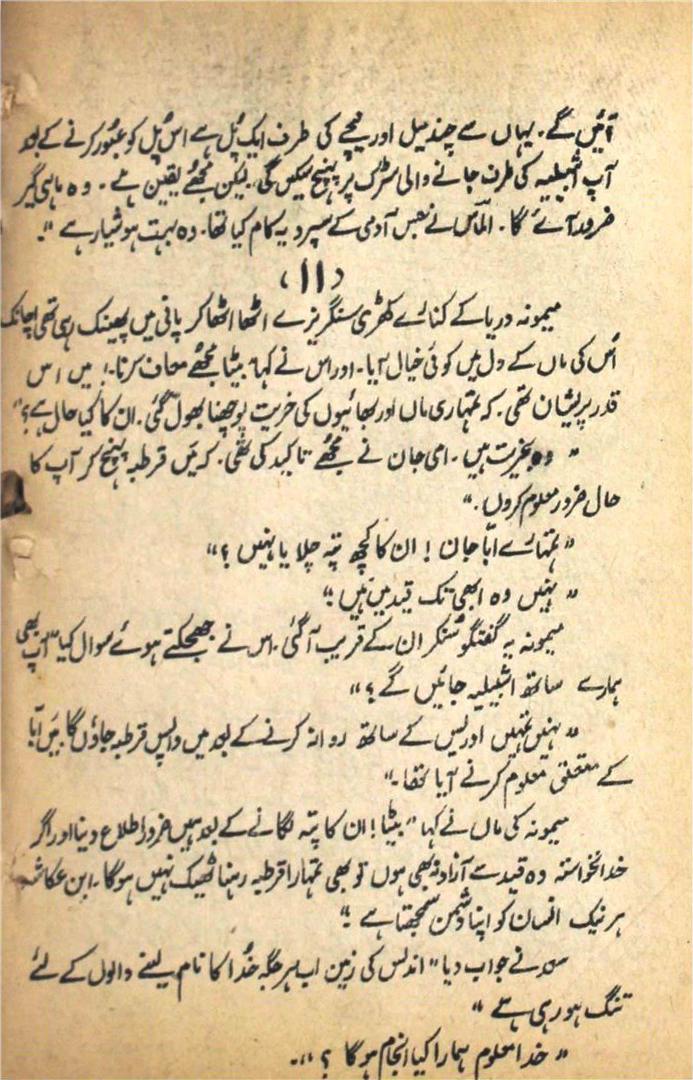 آئیں گے۔ یہاں سے چند میل اور نیچے کی طرف ایک پُل ہے اس پُل کو عبُور کرنے کے بعد
آپ اشبیلیہ کی طرف جانے والی سڑک پر پہنچ سکیں گی۔ لیکن مجھے یقین ہے۔ وہ ماہی گیر
ضرور آئے گا۔ الماس نے جس آدمی کے سپرد یہ کام کیا تھا۔ وہ بہت ہوشیار ہے"۔
(۱۱)
میمونہ دریا کے کنارے کھڑی سنگریزے اٹھا اٹھا کر پانی میں پھینک رہی تھی اچانک
اُس کی ماں کے دل میں کوئی خیال آیا۔ اور اس نے کہا" بیٹا مجھے معاف کرنا۔! میں اس
قدر پریشان تھی۔ کہ تمہاری ماں اور بھائیوں کی خریت پوچھنا بھول گئی۔ ان کا کیا حال ہے؟"
" وہ بخیریت ہیں۔ امی جان نے مجھے تاکید کی تھی۔ کہ میَں قرطبہ پہنچ کر آپ کا
حال ضرور معلوم کروں۔"
" تمہارے ابّا جان! ان کا کچھ پتہ چلا یا نہیں؟"
" نہیں وہ ابھی تک قید میں ہیں"
میمونہ یہ گفتگو سُنکر ان کے قریب آ گئی۔ اس نے جھجکتے ہوئے سوال کیا" آپ بھی
ہمارے ساتھ اشبیلیہ جائیں گے؟"
" نہیں تمہیں ادریس کے ساتھ روانہ کرنے کے بعد میں واپس قرطبہ جاؤں گا۔ میَں ابّا
کے متعلق معلوم کرنے آیا تھا۔"
میمونہ کی ماں نے کہا" بیٹا! ان کا پتہ لگانے کے بعد ہمیں ضرور اطلاع دینا اور اگر
خدانخواستہ وہ قید سے آزاد نہ بھی ہوں تو بھی تمہارا قرطبہ رہنا ٹھیک نہیں ہوگا۔ ابن عکاشہ
ہر نیک انسان کو اپنا دشمن سمجھتا ہے"
سعد نے جواب دیا" اندلس کی زمین اب ہر جگہ خُدا کا نام لینے والوں کے لئے
تنگ ہو رہی ہے"
" خدا معلوم ہمارا کیا انجام ہوگا؟"۔